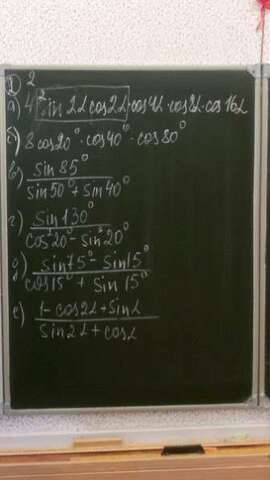 D 2
а) 4 sin 2α cos 2α · cos 4α · cos 8α · cos 16α
б) 8 cos 20° · cos 40° · cos 80°
в) sin 85° / sin 50° + sin 40°
г) sin 130° / cos² 20° - sin² 20°
д) sin 75° - sin 15° / cos 15° + sin 15°
е) 1 - cos 2α + sin α / sin 2α + cos α